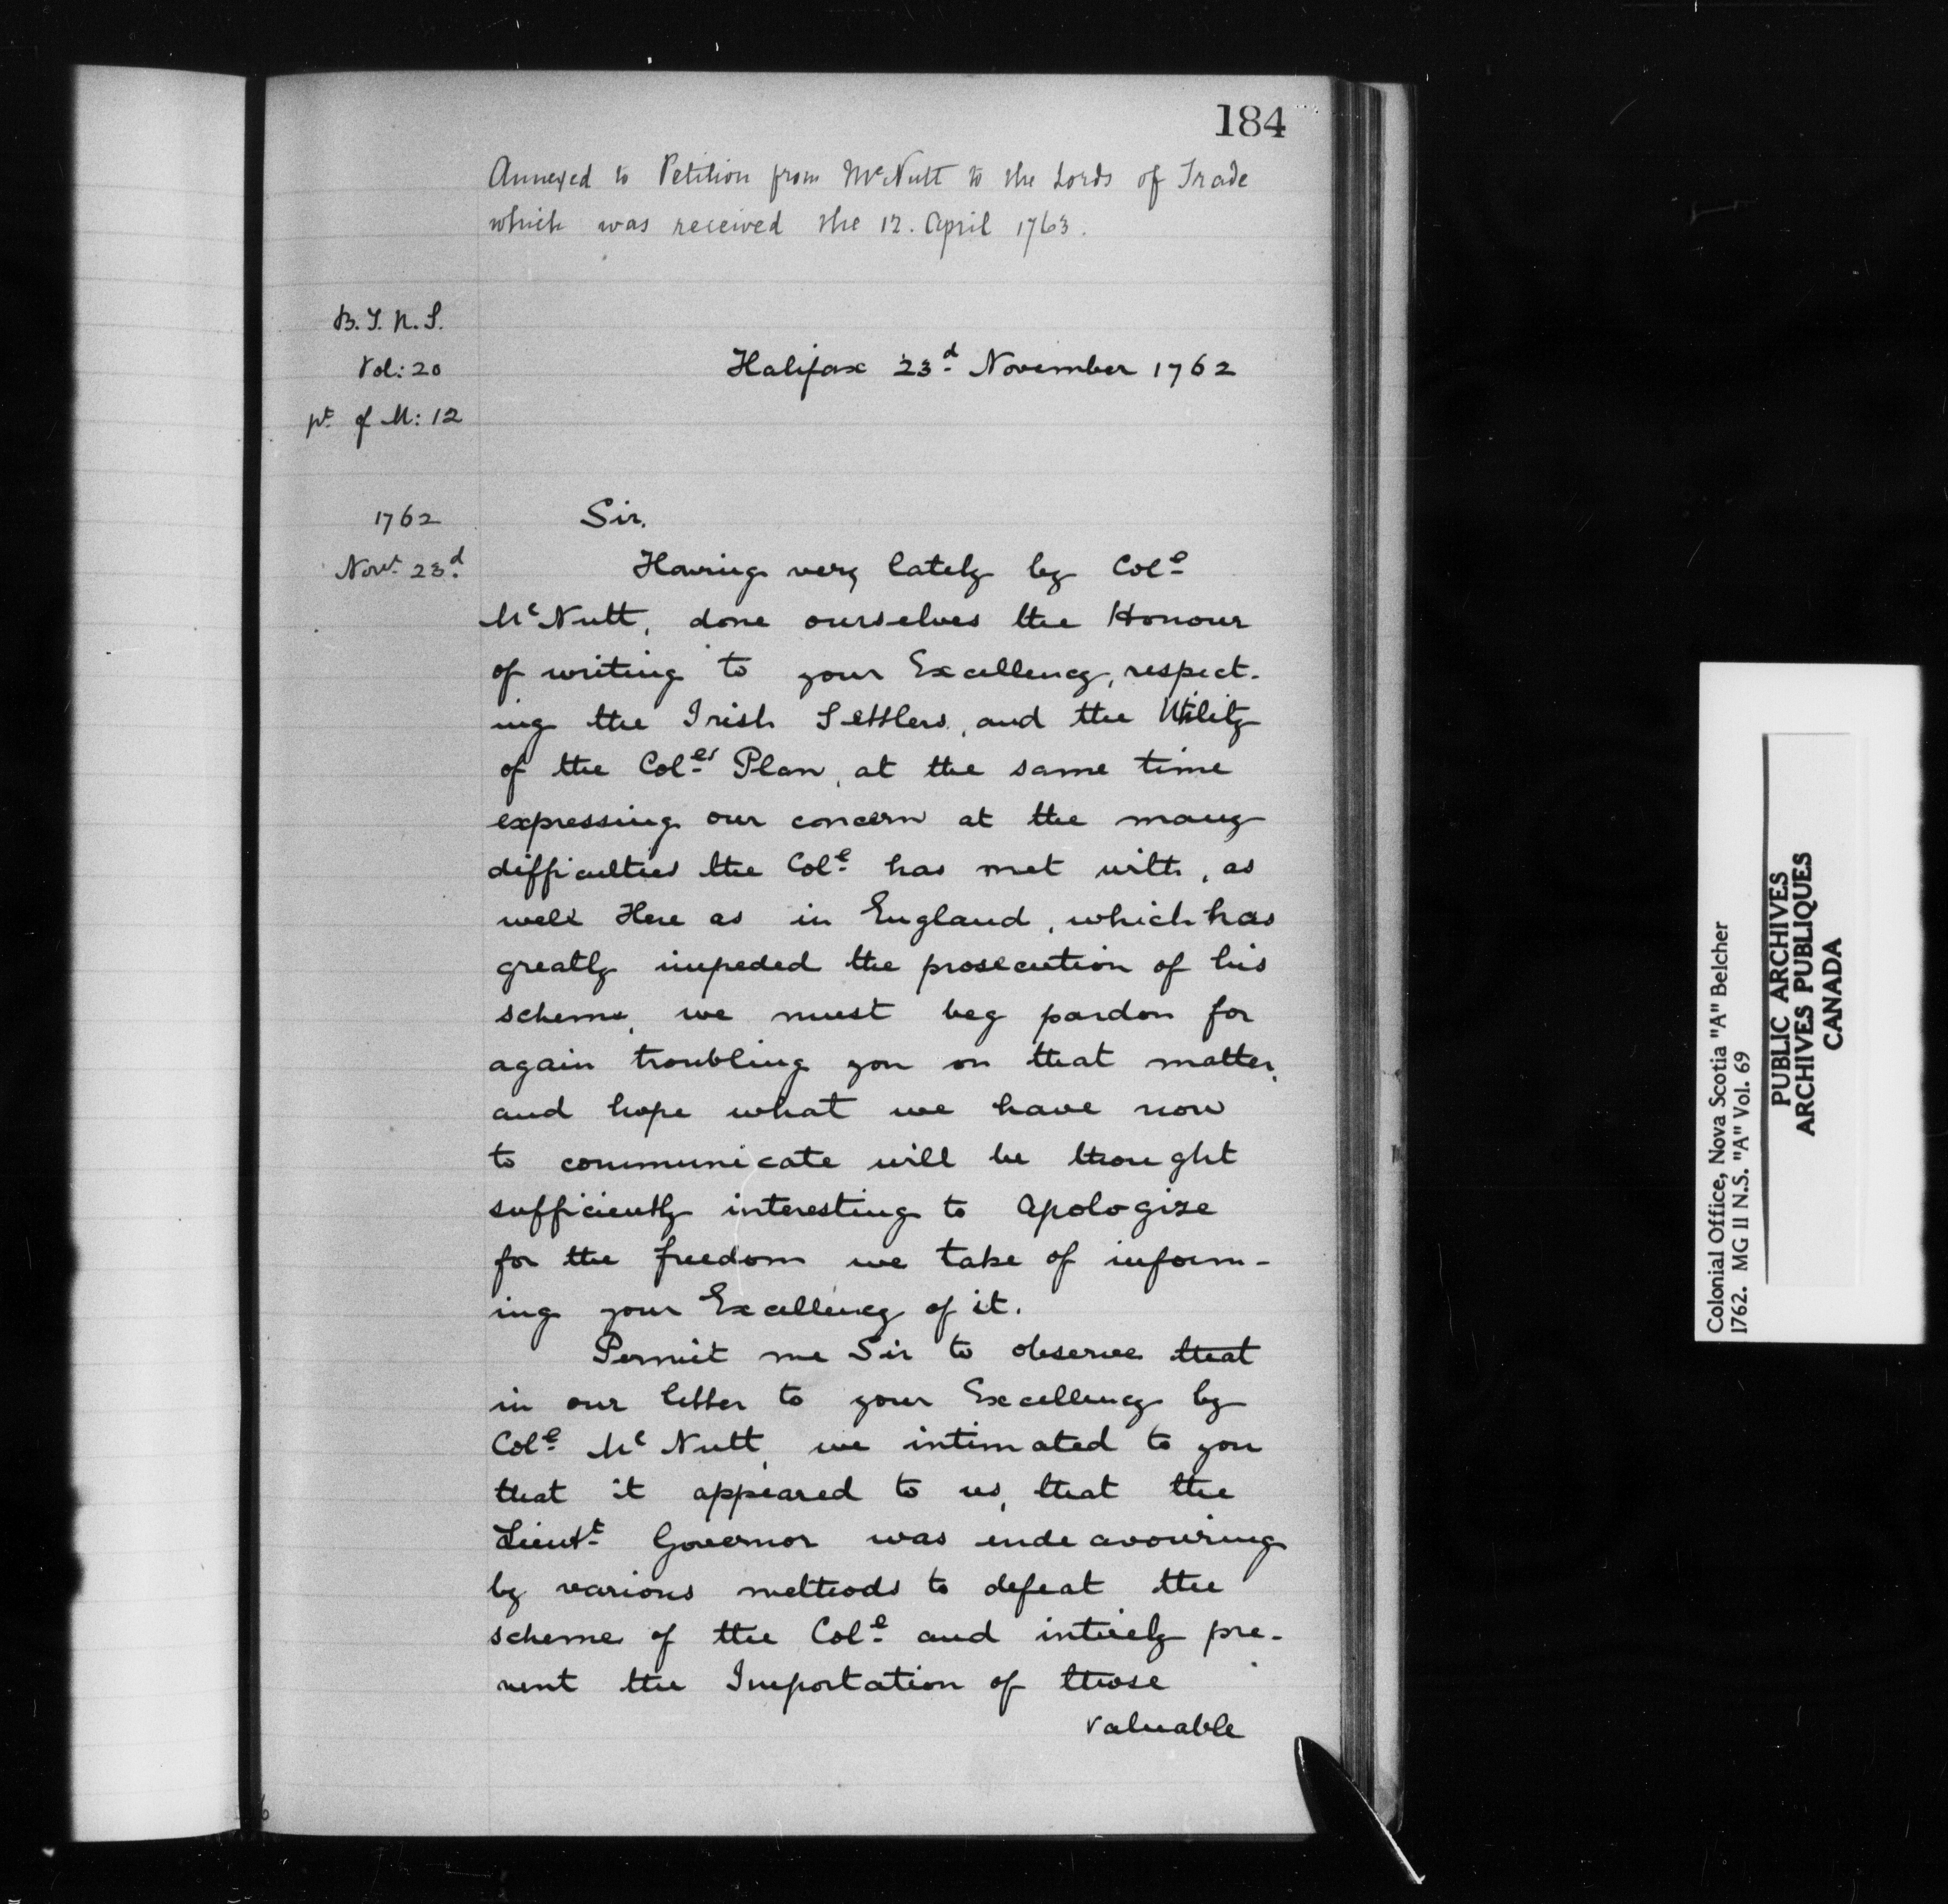 184
Annexed to Petition from McNutt to the Lords of Trade
which was received the 12. April 1763.
B. T. N. S.
Vol: 20
pt of M: 12
Halifax 23d November 1762
1762
Novr 23d
Sir.
Having very lately by Cole
McNutt, done ourselves the Honour
of writing to your Excellency, respect-
ing the Irish Settlers, and the Utility
of the Coles Plan, at the same time
expressing our concern at the many
difficulties the Cole has met with, as
well Here as in England, which has
greatly impeded the prosecution of his
scheme, we must beg pardon for
again troubling you on that matter,
and hope what we have now
to communicate will be thought
sufficiently interesting to Apologize
for the freedom we take of inform-
ing your Excellency of it.
Permit me Sir to observe that
in our letter to your Excellency by
Cole Mc Nutt, we intimated to you
that it appeared to us, that the
Lieutt Governor was endeavouring
by various methods to defeat the
scheme of the Cole and intirely pre-
vent the Importation of those
valuable
Colonial Office, Nova Scotia "A" Belcher
1762. MG 11 N.S. "A" Vol. 69
PUBLIC ARCHIVES
ARCHIVES PUBLIQUES
CANADA